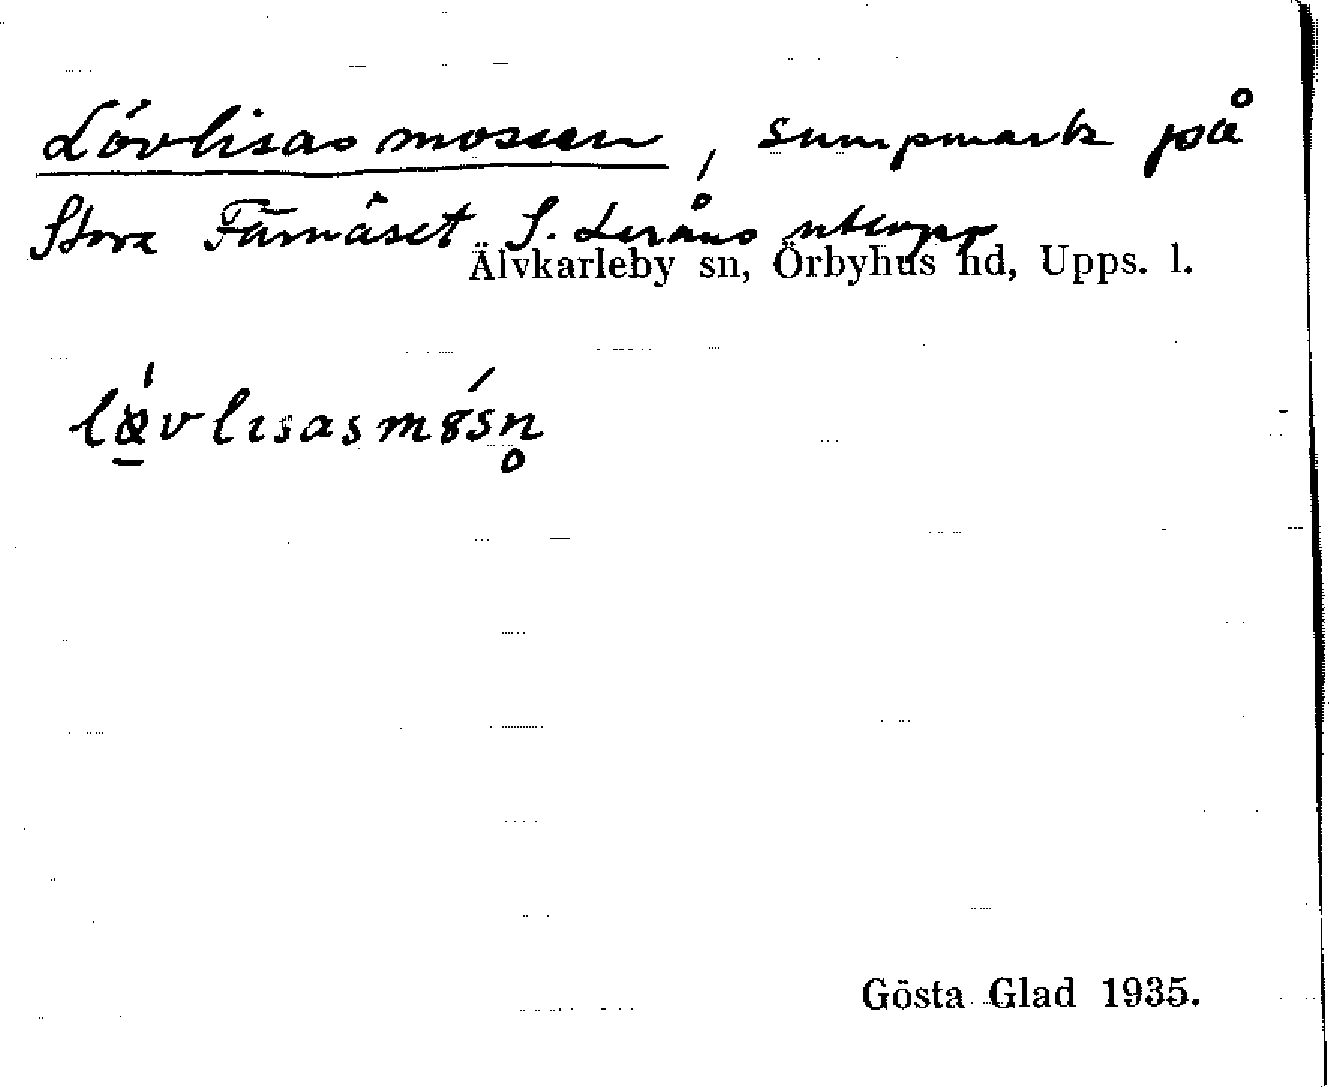 Lövlisas mossen, sumpmark på
Stora Färnäset S. Leråns utlopp
Älvkarleby sn, Örbyhus hd, Upps. l.
lǿ̲vlisasmósn̥
Gösta Glad 1935.